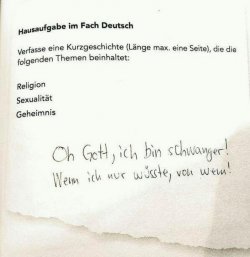 Hausaufgabe im Fach Deutsch
Verfasse eine Kurzgeschichte (Länge max. eine Seite), die die
folgenden Themen beinhaltet:
Religion
Sexualität
Geheimnis
Oh Gott, ich bin schwanger!
Wenn ich nur wüsste, von wem!